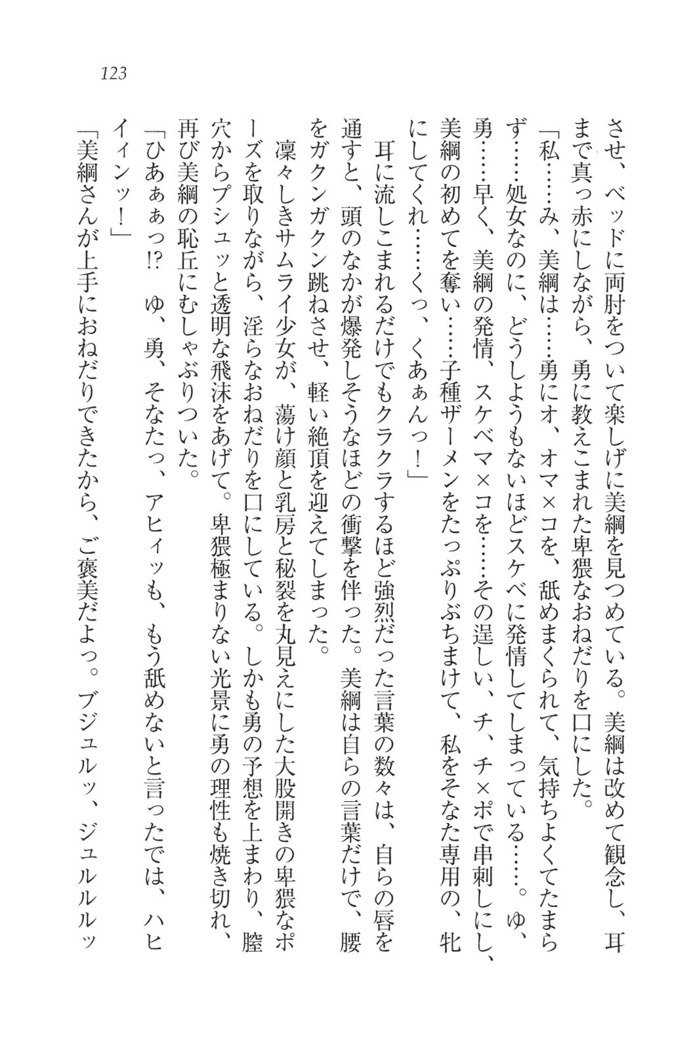 123
させ、ベッドに両肘をついて楽しげに美綱を見つめている。美綱は改めて観念し、耳
まで真っ赤にしながら、勇に教えこまれた卑猥なおねだりを口にした。
「私……み、美綱は……勇にオ、オマ×コを、舐めまくられて、気持ちよくてたまら
ず……処女なのに、どうしようもないほどスケベに発情してしまっている……。ゆ、
勇……早く、美綱の発情、スケベマ×コを……その逞しい、チ、チ×ポで串刺しにし、
美綱の初めてを奪い……子種ザーメンをたっぷりぶちまけて、私をそなた専用の、牝
にしてくれ……くっ、くあぁんっ！」
耳に流しこまれるだけでもクラクラするほど強烈だった言葉の数々は、自らの唇を
通すと、頭のなかが爆発しそうなほどの衝撃を伴った。美綱は自らの言葉だけで、腰
をガクンガクン跳ねさせ、軽い絶頂を迎えてしまった。
凜々しきサムライ少女が、蕩け顔と乳房と秘裂を丸見えにした大股開きの卑猥なポ
ーズを取りながら、淫らなおねだりを口にしている。しかも勇の予想を上まわり、膣
穴からプシュッと透明な飛沫をあげて。卑猥極まりない光景に勇の理性も焼き切れ、
再び美綱の恥丘にむしゃぶりついた。
「ひあぁぁっ!?　ゆ、勇、そなたっ、アヒィッも、もう舐めないと言ったでは、ハヒ
イィンッ！」
「美綱さんが上手におねだりできたから、ご褒美だよっ。ブジュルッ、ジュルルルッ